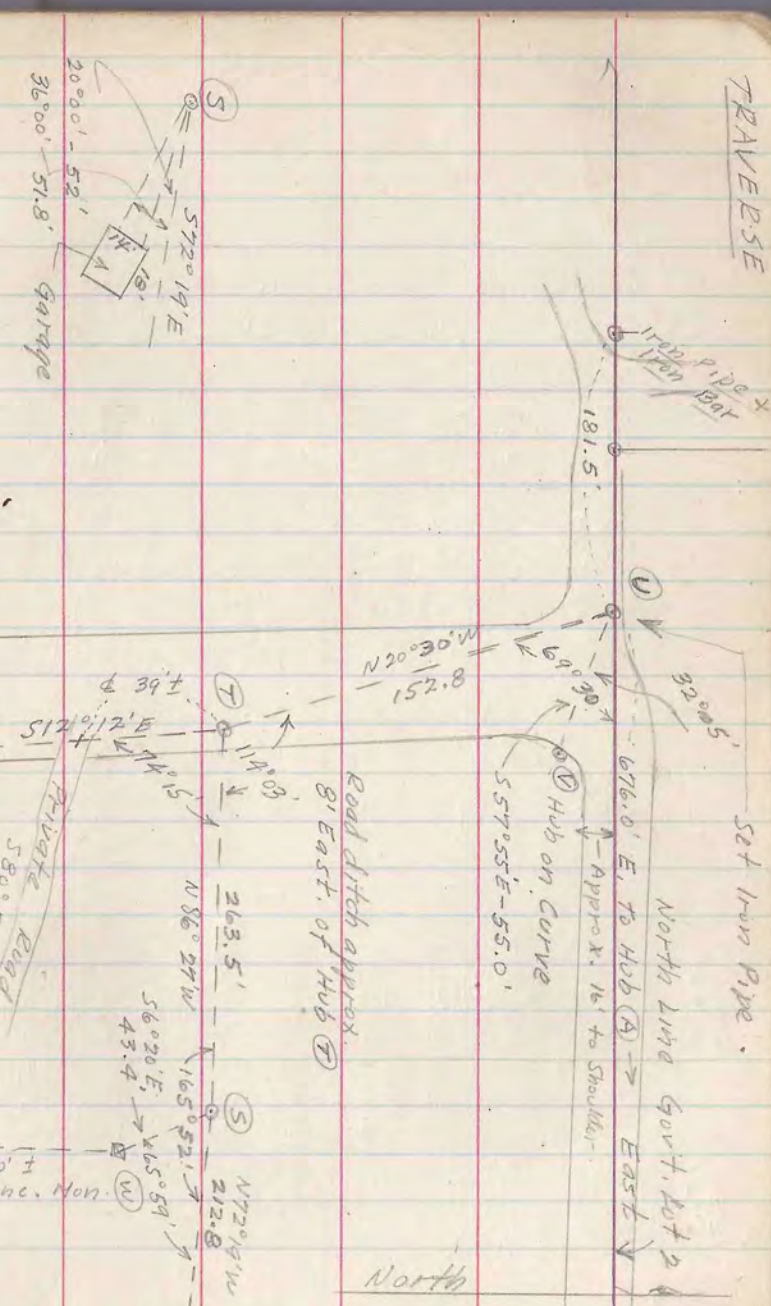 TRAVERSE
Set Iron Pipe.
North Line Gov't. Lot 2
Iron pipe &
Iron Bar
181.5'
U
32°05'
676.0' E. To Hub A → East
Approx. 16' to Shoulder
V Hub on Curve
S57°55'E-55.0'
69°30'
N20°30'W
152.8
Road ditch approx.
8' East. of Hub T
T
114°03'
39'±
S12°12'E
74°15'
263.5'
N86°27'W
S
165°52'
N72°19'W
212.8
S6°20'E,
43.4
65°59'
W
Private Road
S80°
North
S
S72°19'E
20°00' - 52'
36°00' - 51.8'
14'
18'
Garage